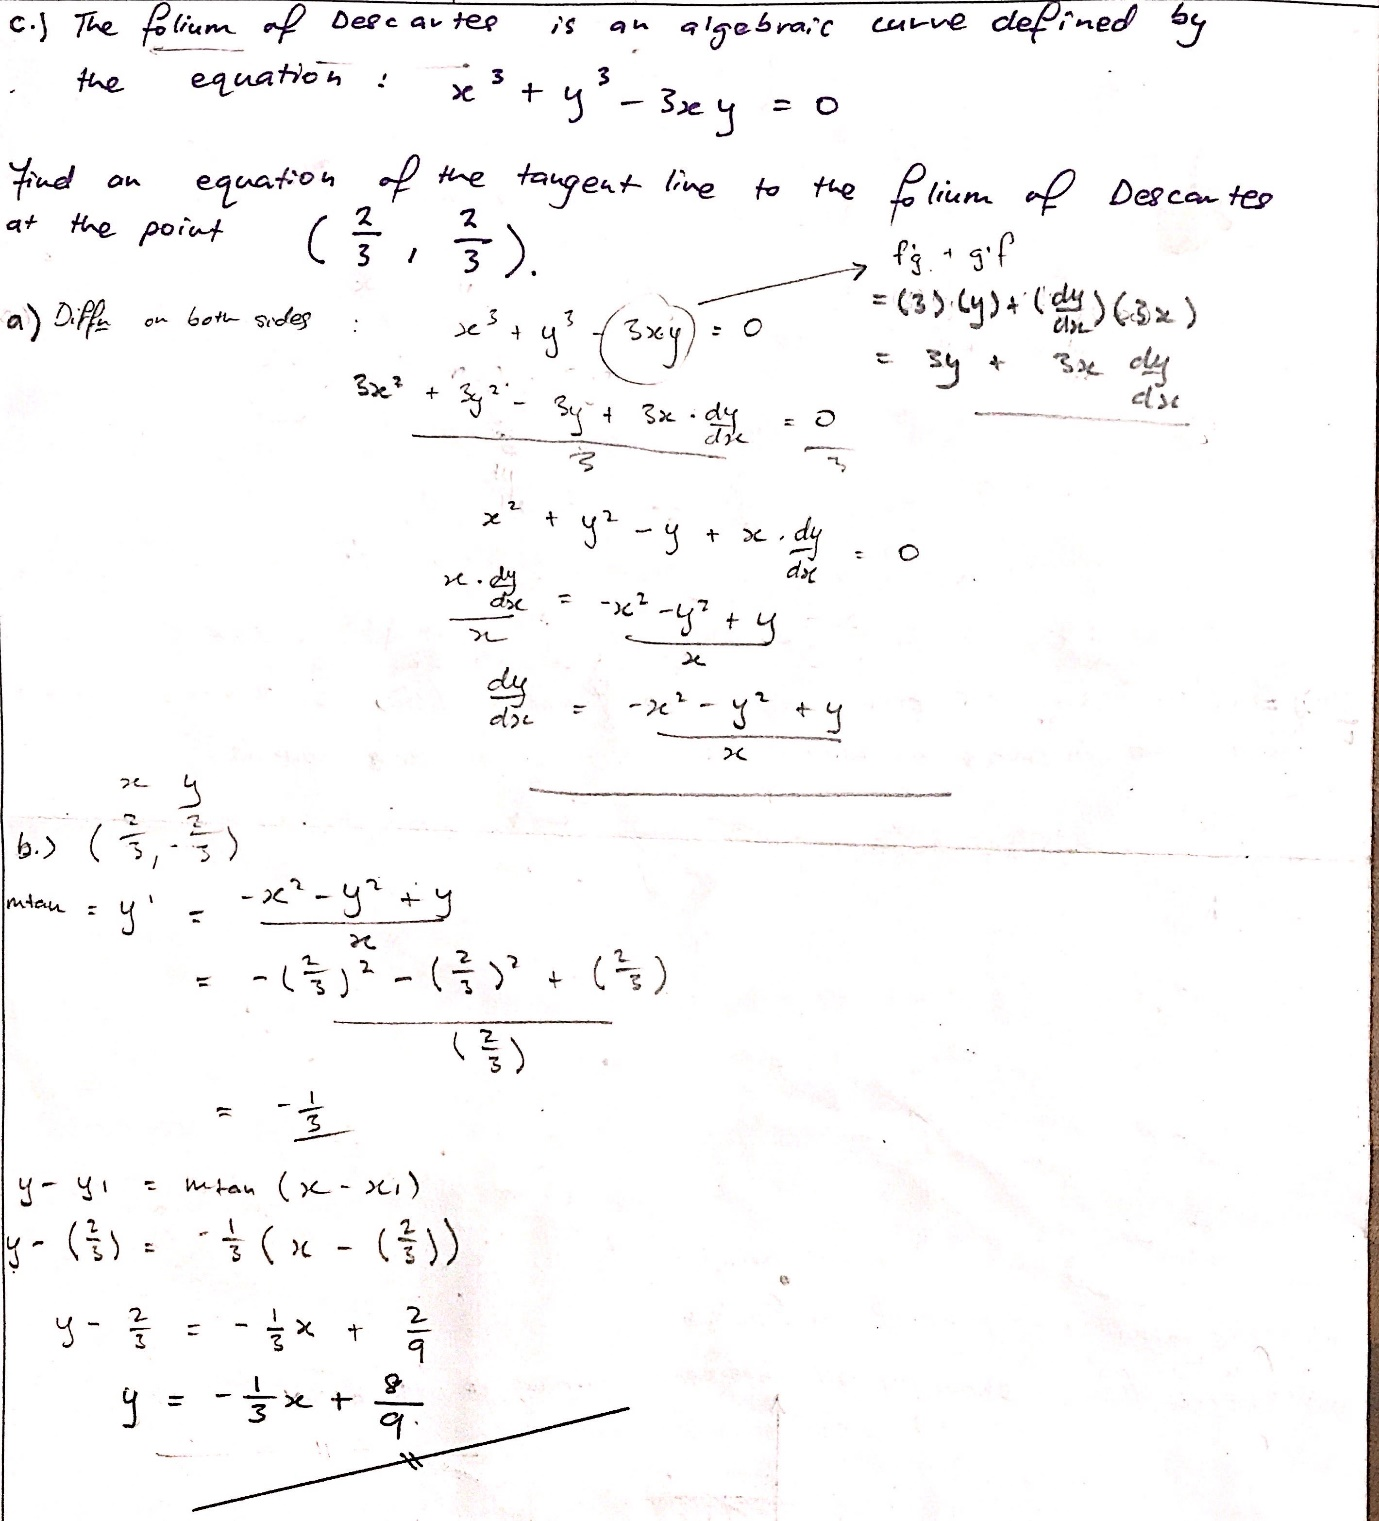 c.) The folium of Descartes is an algebraic curve defined by
the equation : x³ + y³ - 3xy = 0
Find an equation of the tangent line to the folium of Descartes
at the point (2/3, 2/3).
f'g + g'f
= (3)·(y) + (dy/dx)(3x)
= 3y + 3x dy/dx
a) Diffn on both sides : x³ + y³ - 3xy = 0
(3x² + 3y² - 3y + 3x · dy/dx)/3 = 0/3
x² + y² - y + x · dy/dx = 0
(x · dy/dx)/x = (-x² - y² + y)/x
dy/dx = (-x² - y² + y)/x
x y
b.) (2/3, -2/3)
mtan = y' = (-x² - y² + y)/x
= (-(2/3)² - (2/3)² + (2/3))/(2/3)
= -1/3
y - y1 = mtan (x - x1)
y - (2/3) = -1/3 (x - (2/3))
y - 2/3 = -1/3 x + 2/9
y = -1/3 x + 8/9.